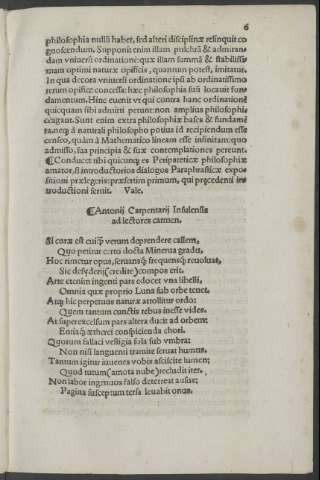 6
philosophia nullũ habet, sed alteri disciplinæ relinquit co
gnoscendum. Supponit enim illam pulchrã & admiran⸗
dam vniuersi ordinatione: quæ illam summã & stabilissi
mam optimi naturæ opificis, quantum potest, imitatur.
In qua decora vniuersi ordinatione ipsi ab ordinatissimo
rerum opifice concessa: hæc philosophia sua locauit fun⸗
damentum. Hinc euenit vt qui contra hanc ordinationē
quicquam sibi admitti petunt: non amplius philosophi⸗
cè agant. Sunt enim extra philosophiæ bases & fundamē
ta. neq; à naturali philosopho potius id recipiendum esse
censeo, quàm à Mathematico lineam esse infinitam: quo
admisso, sua principia & suæ contemplationes pereunt.
¶ Conducet tibi quicunq; es Peripateticæ philosophiæ
amator, si introductorios dialogos Paraphrasticæ expo⸗
sitioni prælegeris: præsertim primum, qui præcedenti in⸗
troductioni seruit. Vale.
¶ Antonij Carpentarij Insulensis
ad lectores carmen.
Si curæ est cuiq̃ verum deprendere callem,
Quo petitur certo docta Minerua gradu,
Hoc nitetur opus, seruansq; frequensq; reuoluat,
Sic desyderij (credite) compos erit.
Arte etenim ingenti pars edocet vna libelli,
Omnia quæ proprio Luna sub orbe tenet.
Atq; hic perpetuus naturæ attollitur ordo:
Quem tantum cunctis rebus inesse vides.
At superexcelsum pars altera ducit ad orbem:
Entiaq; ætherei conspicienda chori.
Quorum fallaci vestigia sola sub vmbra:
Non nisi languenti tramite seruat humus.
Tantum igitur iuuenes vobis asciscite lumen;
Quod tutum (amota nube) recludit iter.
Non labor ingenuos falso deterreat ausus;
Pagina susceptum tersa leuabit onus.